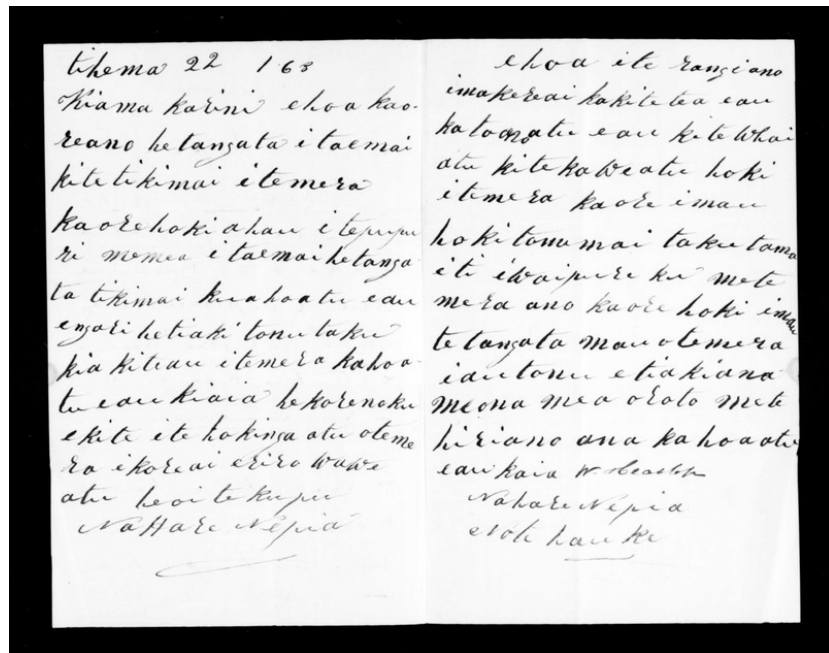 tihema 22 168
Kiama karini ehoa kao-
reano hetangata itaemai
kitetikimai itemera
kaorehoki ahau itepupu
ri momea itaemaihetanga-
ta tikimai kuahoatu eau
engari hetiaki tonutaku
kia kiteau itemera kahoa-
tu eau kiaia hekorenoku
ekite ite hokinga atu oteme
ra ikoreai eriro wawe
atu heoi tekupu
NaHare Nepia
ehoa ite rangiano
imakereai kakitetea eau
katonoatu eau kitewhai
atu kitekaweatu hoki
itemera kaore imau
hoki tonumai taku tama
iti iwaipureku mete
mera ano kaore hoki imau
te tangata mau otemera
iautonu etiakiana
meona mea oroto mete
hiriano ana kahoaatu
eau kaia
Nahare Nepia
Note hauke